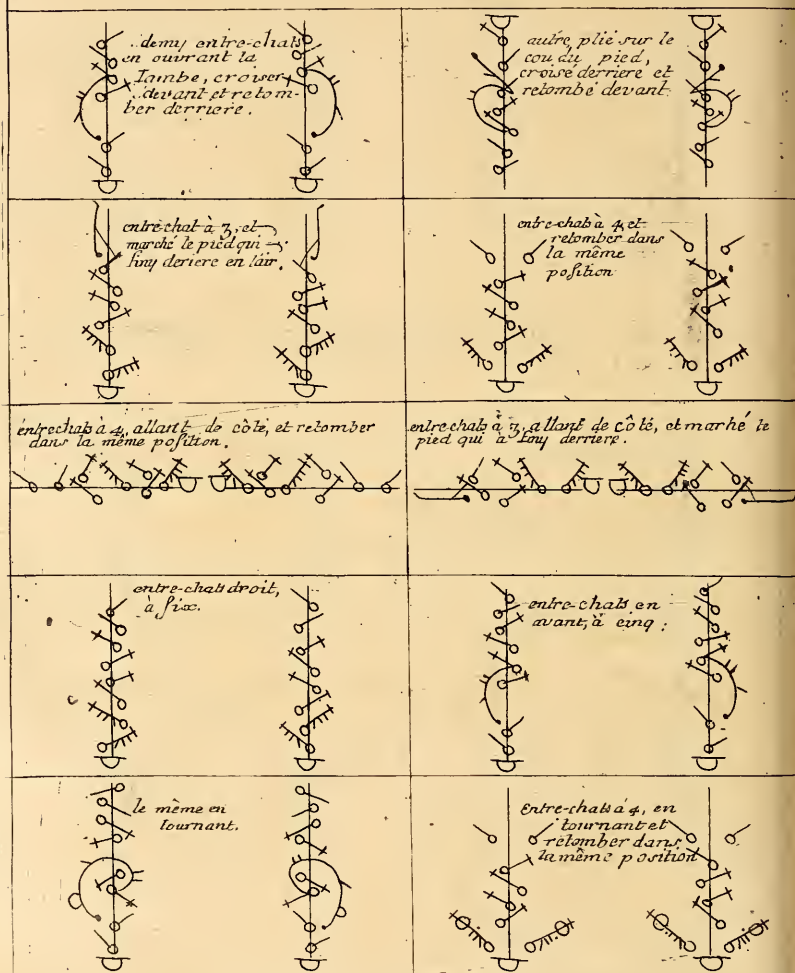 demy entre-chats
en ouvrant la
Iambe, croiser
devant et retom-
ber derriere.
autre, plié sur le
cou du pied,
croisé derriere et
retombé devant
entre-chat à 3, et
marché le pied qui
finy deriere en l'air.
entre-chats à 4, et
retomber dans
la même
position
entre chats à 4, allant de côté, et retomber
dans la même position.
entre-chats à 3, allant de côté, et marhé le
pied qui à finy derriere.
entre-chats droit,
à six.
entre-chats en
avant, à cinq :
le même en
tournant.
Entre-chats à 4, en
tournant et
retomber dans
la même position